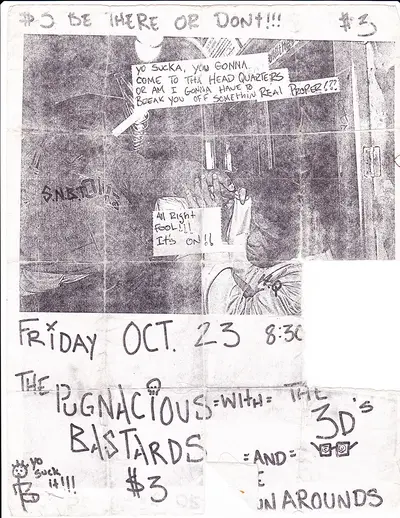 $3 BE THERE OR DONT!!! $3
YO SUCKA, YOU GONNA
COME TO THA HEAD QUARTERS
OR AM I GONNA HAVE TO
BREAK YOU OFF SOMETHIN REAL PROPER!??
S.N.B.T.
All Right
FOOL!!!
It's ON!!
FRiDAY OCT. 23 8:30
THE PUGNACIOUS =WITH= THE
BASTARDS 3D's
=AND=
yo
suck
it!!!
$3
UNAROUNDS